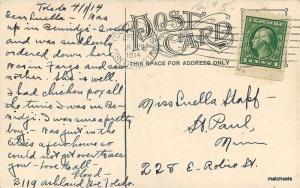 Toledo 4/1/14
Dear Luella - I was
up in Bemidji - Sunday
and was suddenly
ordered down
was in Fargo and saw
mother. She is well.
I had chicken pox all
the time I was in Be-
midji. I was sure a pretty
boy - Was just in the
cities a few hours so
could not get over to see
you - Love to all -
Floyd -
2119 Ashland Ave Toledo.
POST CARD
THIS SPACE FOR ADDRESS ONLY
1914
Miss Luella Staff -
St. Paul,
Minn
228 E. Robie St.
matchsets